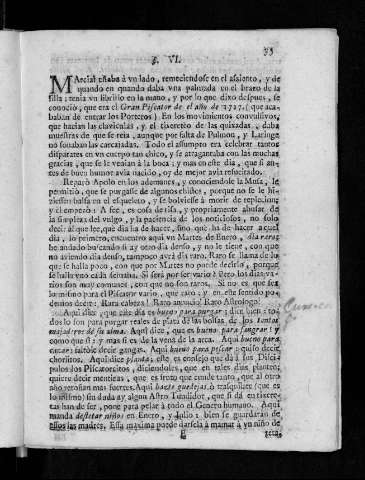 §. VI. 33
MArcial estaba à vn lado, remeciendose en el assiento, y de
quando en quando daba vna palmada en el brazo de la
silla; tenia vn librillo en la mano, y por lo que dixo despues, se
conociò, que era el Gran Piscator de el año de 1727. (que aca-
baban de entrar los Porteros) En los movimientos convulsivos,
que hacian las claviculas, y el tixereteo de las quixadas, daba
muestras de que se reia, aunque por falta de Pulmon, y Laringe
no sonaban las carcajadas. Todo el assumpto era celebrar tantos
disparates en vn cuerpo tan chico, y se atragantaba con las muchas
gracias, que se le venian à la boca; y mas en este dia, que si an-
tes de buen humor avia nacido, oy de mejor avia resucitado.
Reparò Apolo en los ademanes, y conociendole la Musa, le
permitiò, que se purgasse de algunos chistes, porque no se le hi-
ziessen balsa en el esqueleto, y se bolviesse à morir de replecion;
y èl empezò: A fee, es cosa de risa, y propriamente abusar de
la simpleza del vulgo, y la paciencia de los noticiosos, no solo
decir al que lee, que dia ha de hacer, sino que ha de hacer aquel
dia, lo primero, encuentro aqui vn Martes de Enero, dia raro;
he andado buscando si ay otro dia denso, y no le tiene, con que
no aviendo dia denso, tampoco avrà dia raro. Raro se llama de lo
que se halla poco, con que por Martes no puede decirlo, porque
se halla vno cada semana. Si serà por ser vario? Pero los dias va-
rios son muy comunes, con que no son raros. Si no es, que sea
lo mismo para el Piscator vario, que raro; y en este sentido po-
demos decir: Rara cabeza! Raro anuncio! Raro Astrologo!
Aqui dice, que este dia es bueno para purgar; dice bien: to-
dos lo son para purgar reales de plata de las bolsas de los tontos
majaderos de su alma. Aqui dice, que es bueno para sangrar; y
como que si: y mas si es de la vena de el arca. Aqui bueno para
cazar: faltòle decir gangas. Aqui bueno para pescar: quiso decir,
chorlitos. Aquì dice planta; este es consejo que dà à sus Disci-
pulos los Piscatorcitos, diciendoles, que en tales dias planten;
quiere decir mentiras, que es fruto que cunde tanto, que al otro
año retoñan mas fuertes. Aqui haete guedejas, ò trasquilate (que es
lo mismo) sin duda ay algun Astro Tundidor, que si dà en tixere-
tas han de ser, pone para pelar à todo el Genero humano. Aqui
manda destetar niños en Enero, y Julio: bien se guardaràn de
ellos las madres. Essa maxima puede darsela à mamar à vn niño de
E teta,